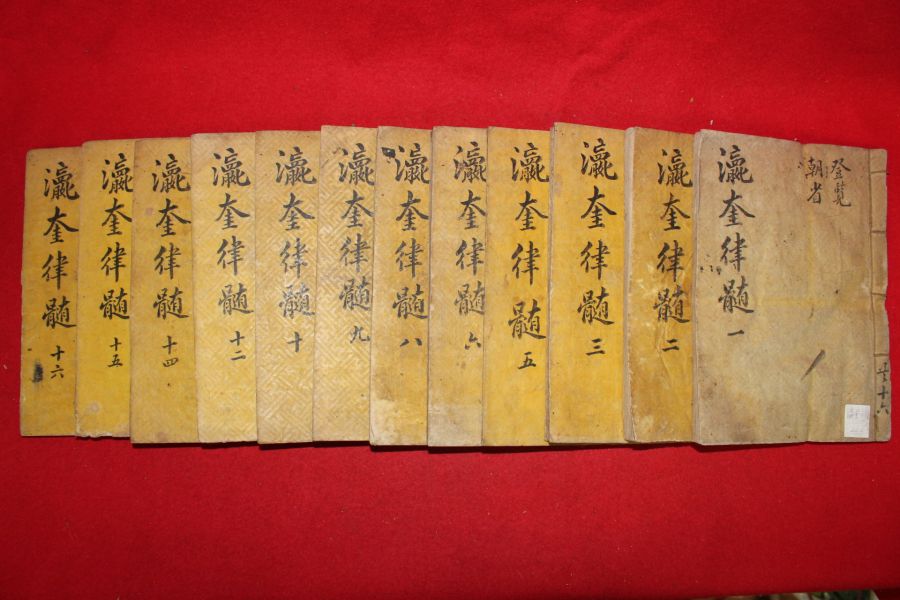 共十六
登覽
朝省
瀛奎律髄 一
瀛奎律髄 二
瀛奎律髄 三
瀛奎律髄 五
瀛奎律髄 六
瀛奎律髄 八
瀛奎律髄 九
瀛奎律髄 十
瀛奎律髄 十二
瀛奎律髄 十四
瀛奎律髄 十五
瀛奎律髄 十六